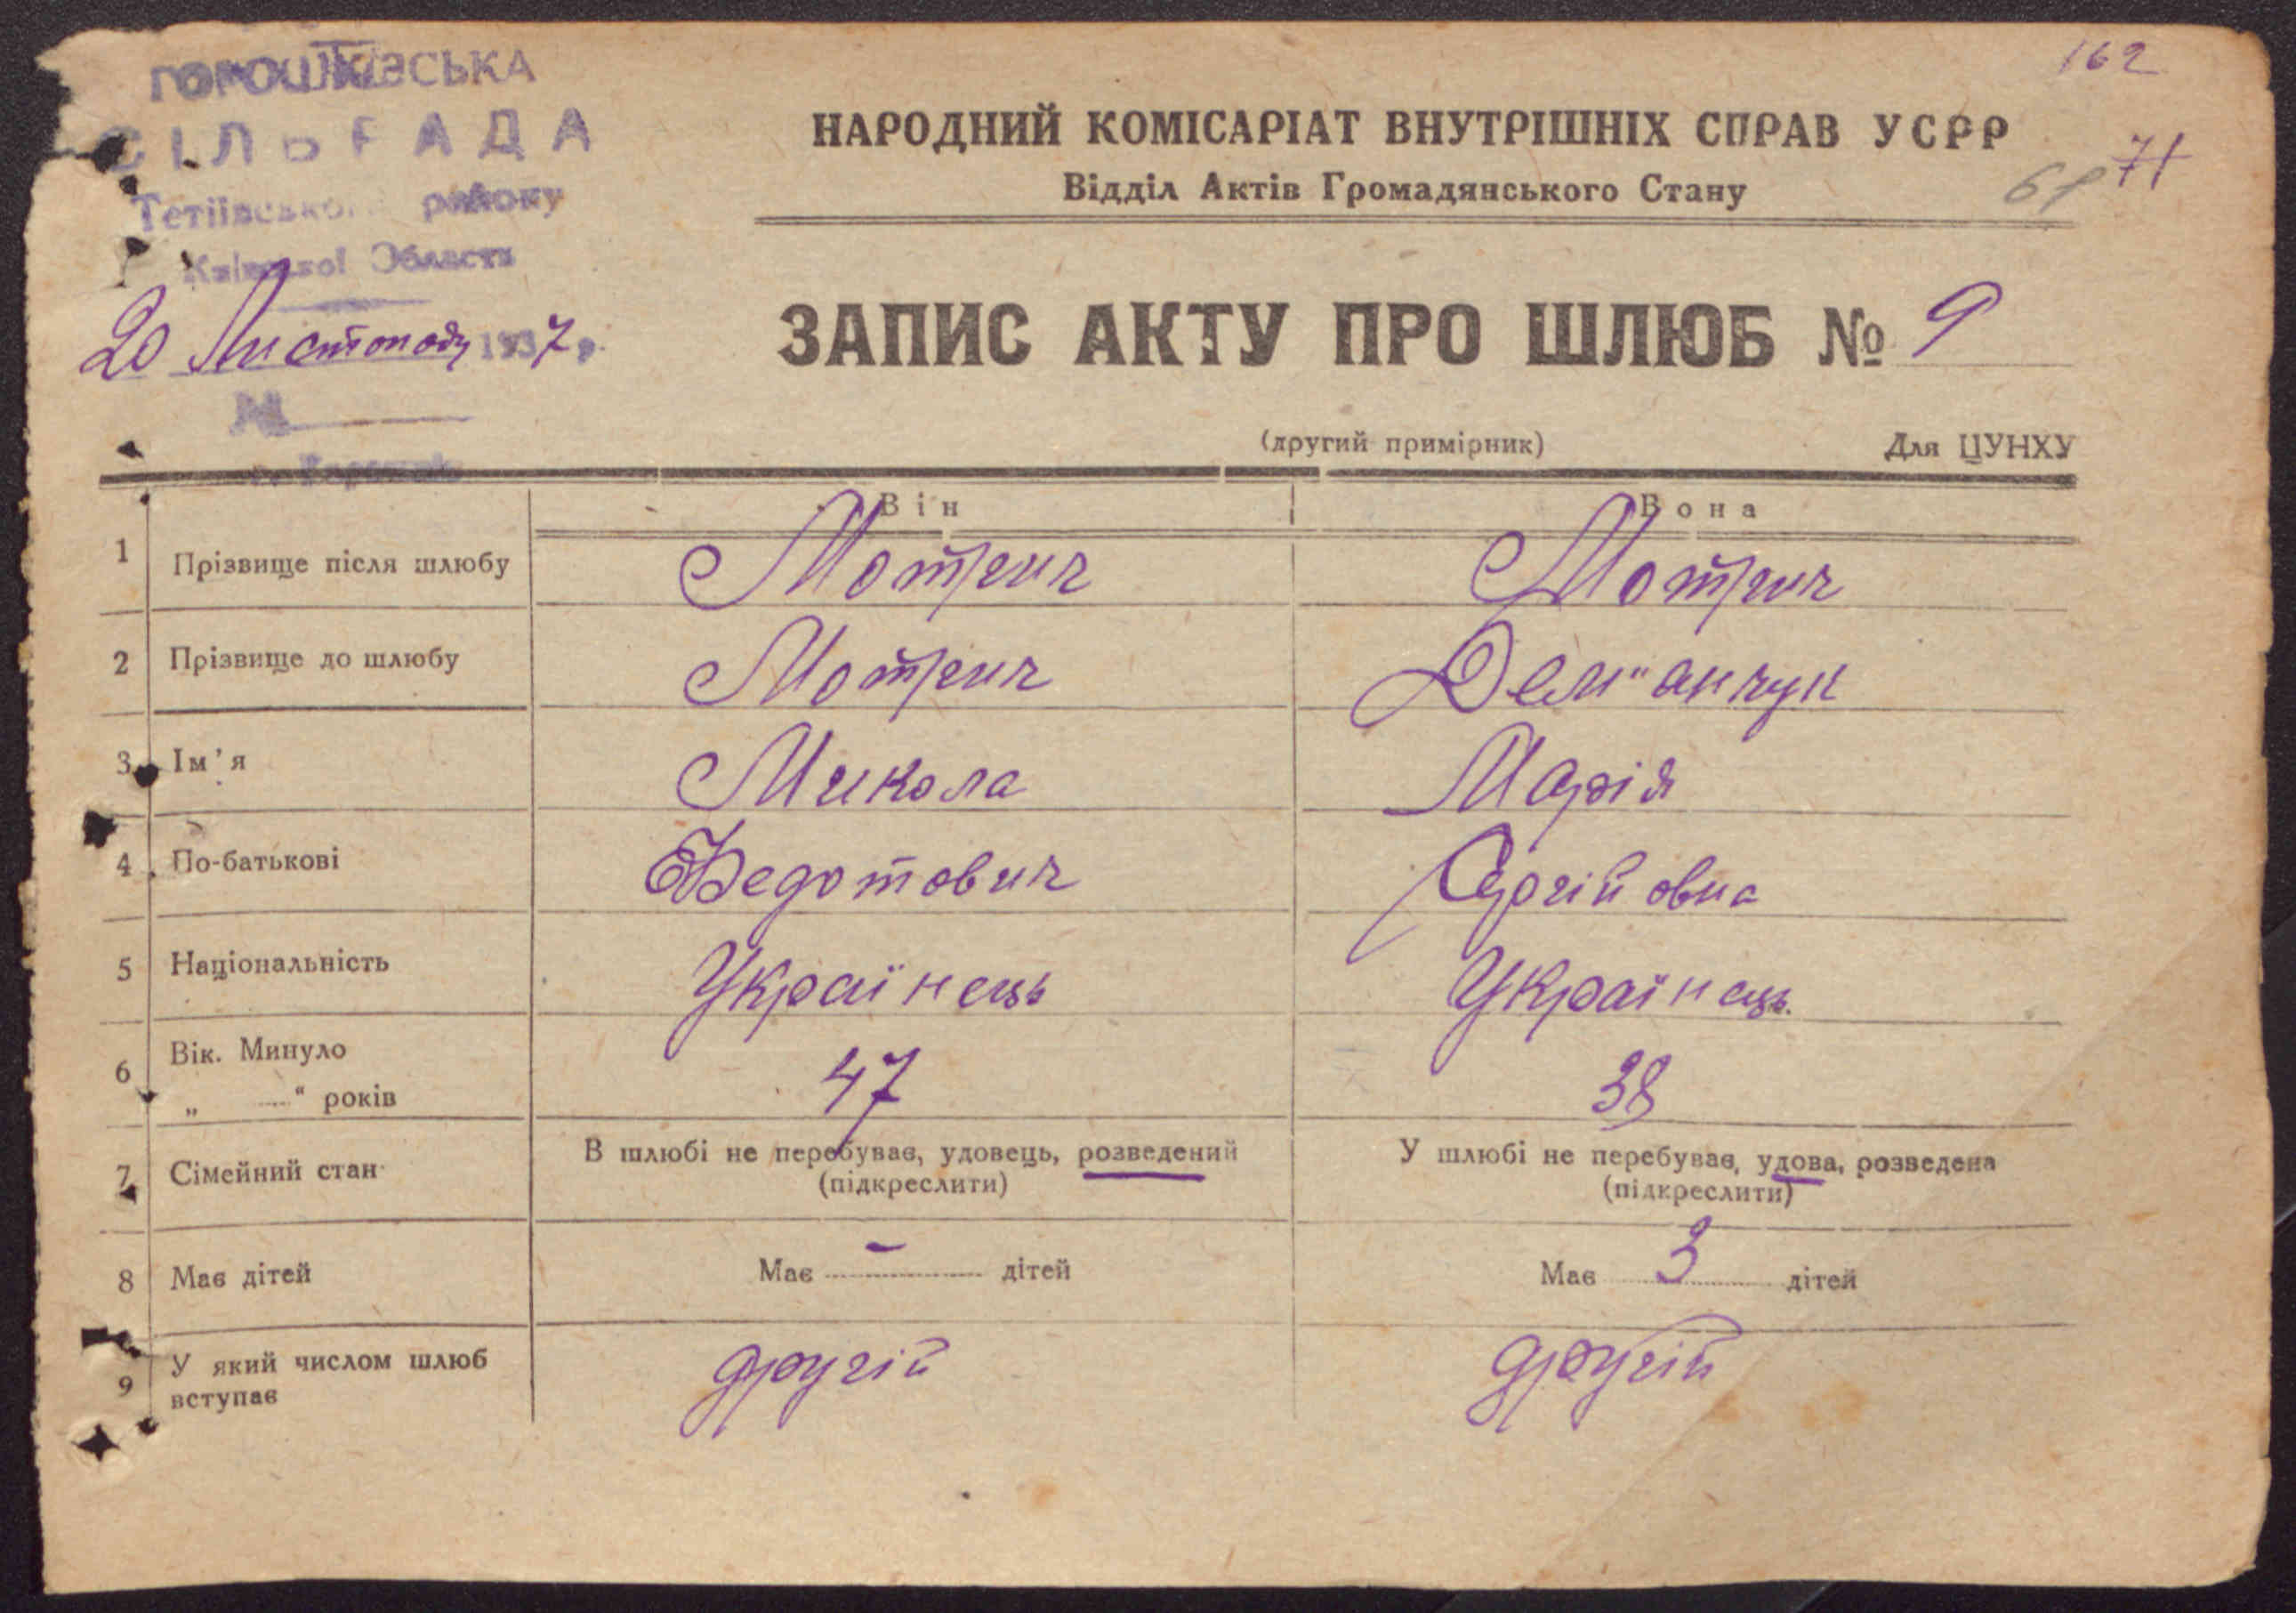 ГОРОШКІВСЬКА
162
СІЛЬРАДА
НАРОДНИЙ КОМІСАРІАТ ВНУТРІШНІХ СПРАВ УСРР
71
Тетіївського району
Відділ Актів Громадянського Стану
Київської Области
20 Листопаду 1937 р.
ЗАПИС АКТУ ПРО ШЛЮБ № 9
№
(другий примірник) Для ЦУНХУ
Він Вона
1 Прізвище після шлюбу Мотрич Мотрич
2 Прізвище до шлюбу Мотрич Дем"анчук
3 Ім'я Микола Марія
4 По-батькові Федотович Сергійовна
5 Національність Українець Українець.
6 Вік. Минуло 47 38
„ “ років
7 Сімейний стан В шлюбі не перебуває, удовець, розведений У шлюбі не перебуває, удова, розведена
(підкреслити) (підкреслити)
8 Має дітей Має - дітей Має 3 дітей
9 У який числом шлюб вступає другій другій